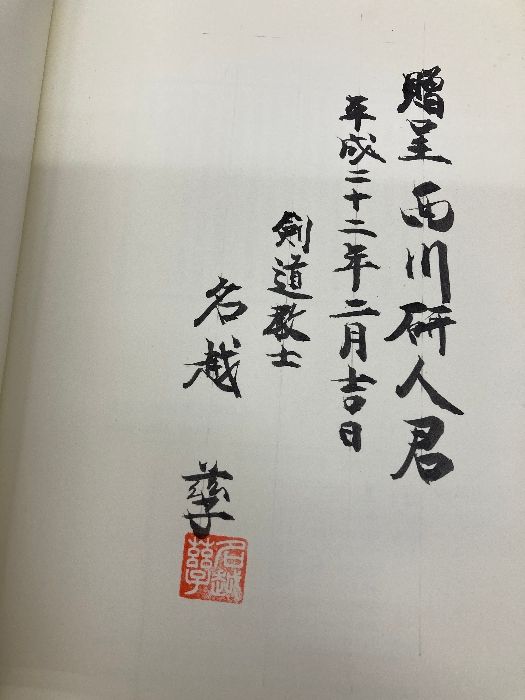 贈呈 西川研人君
平成二十二年二月吉日
剣道教士
名越 孳
名越